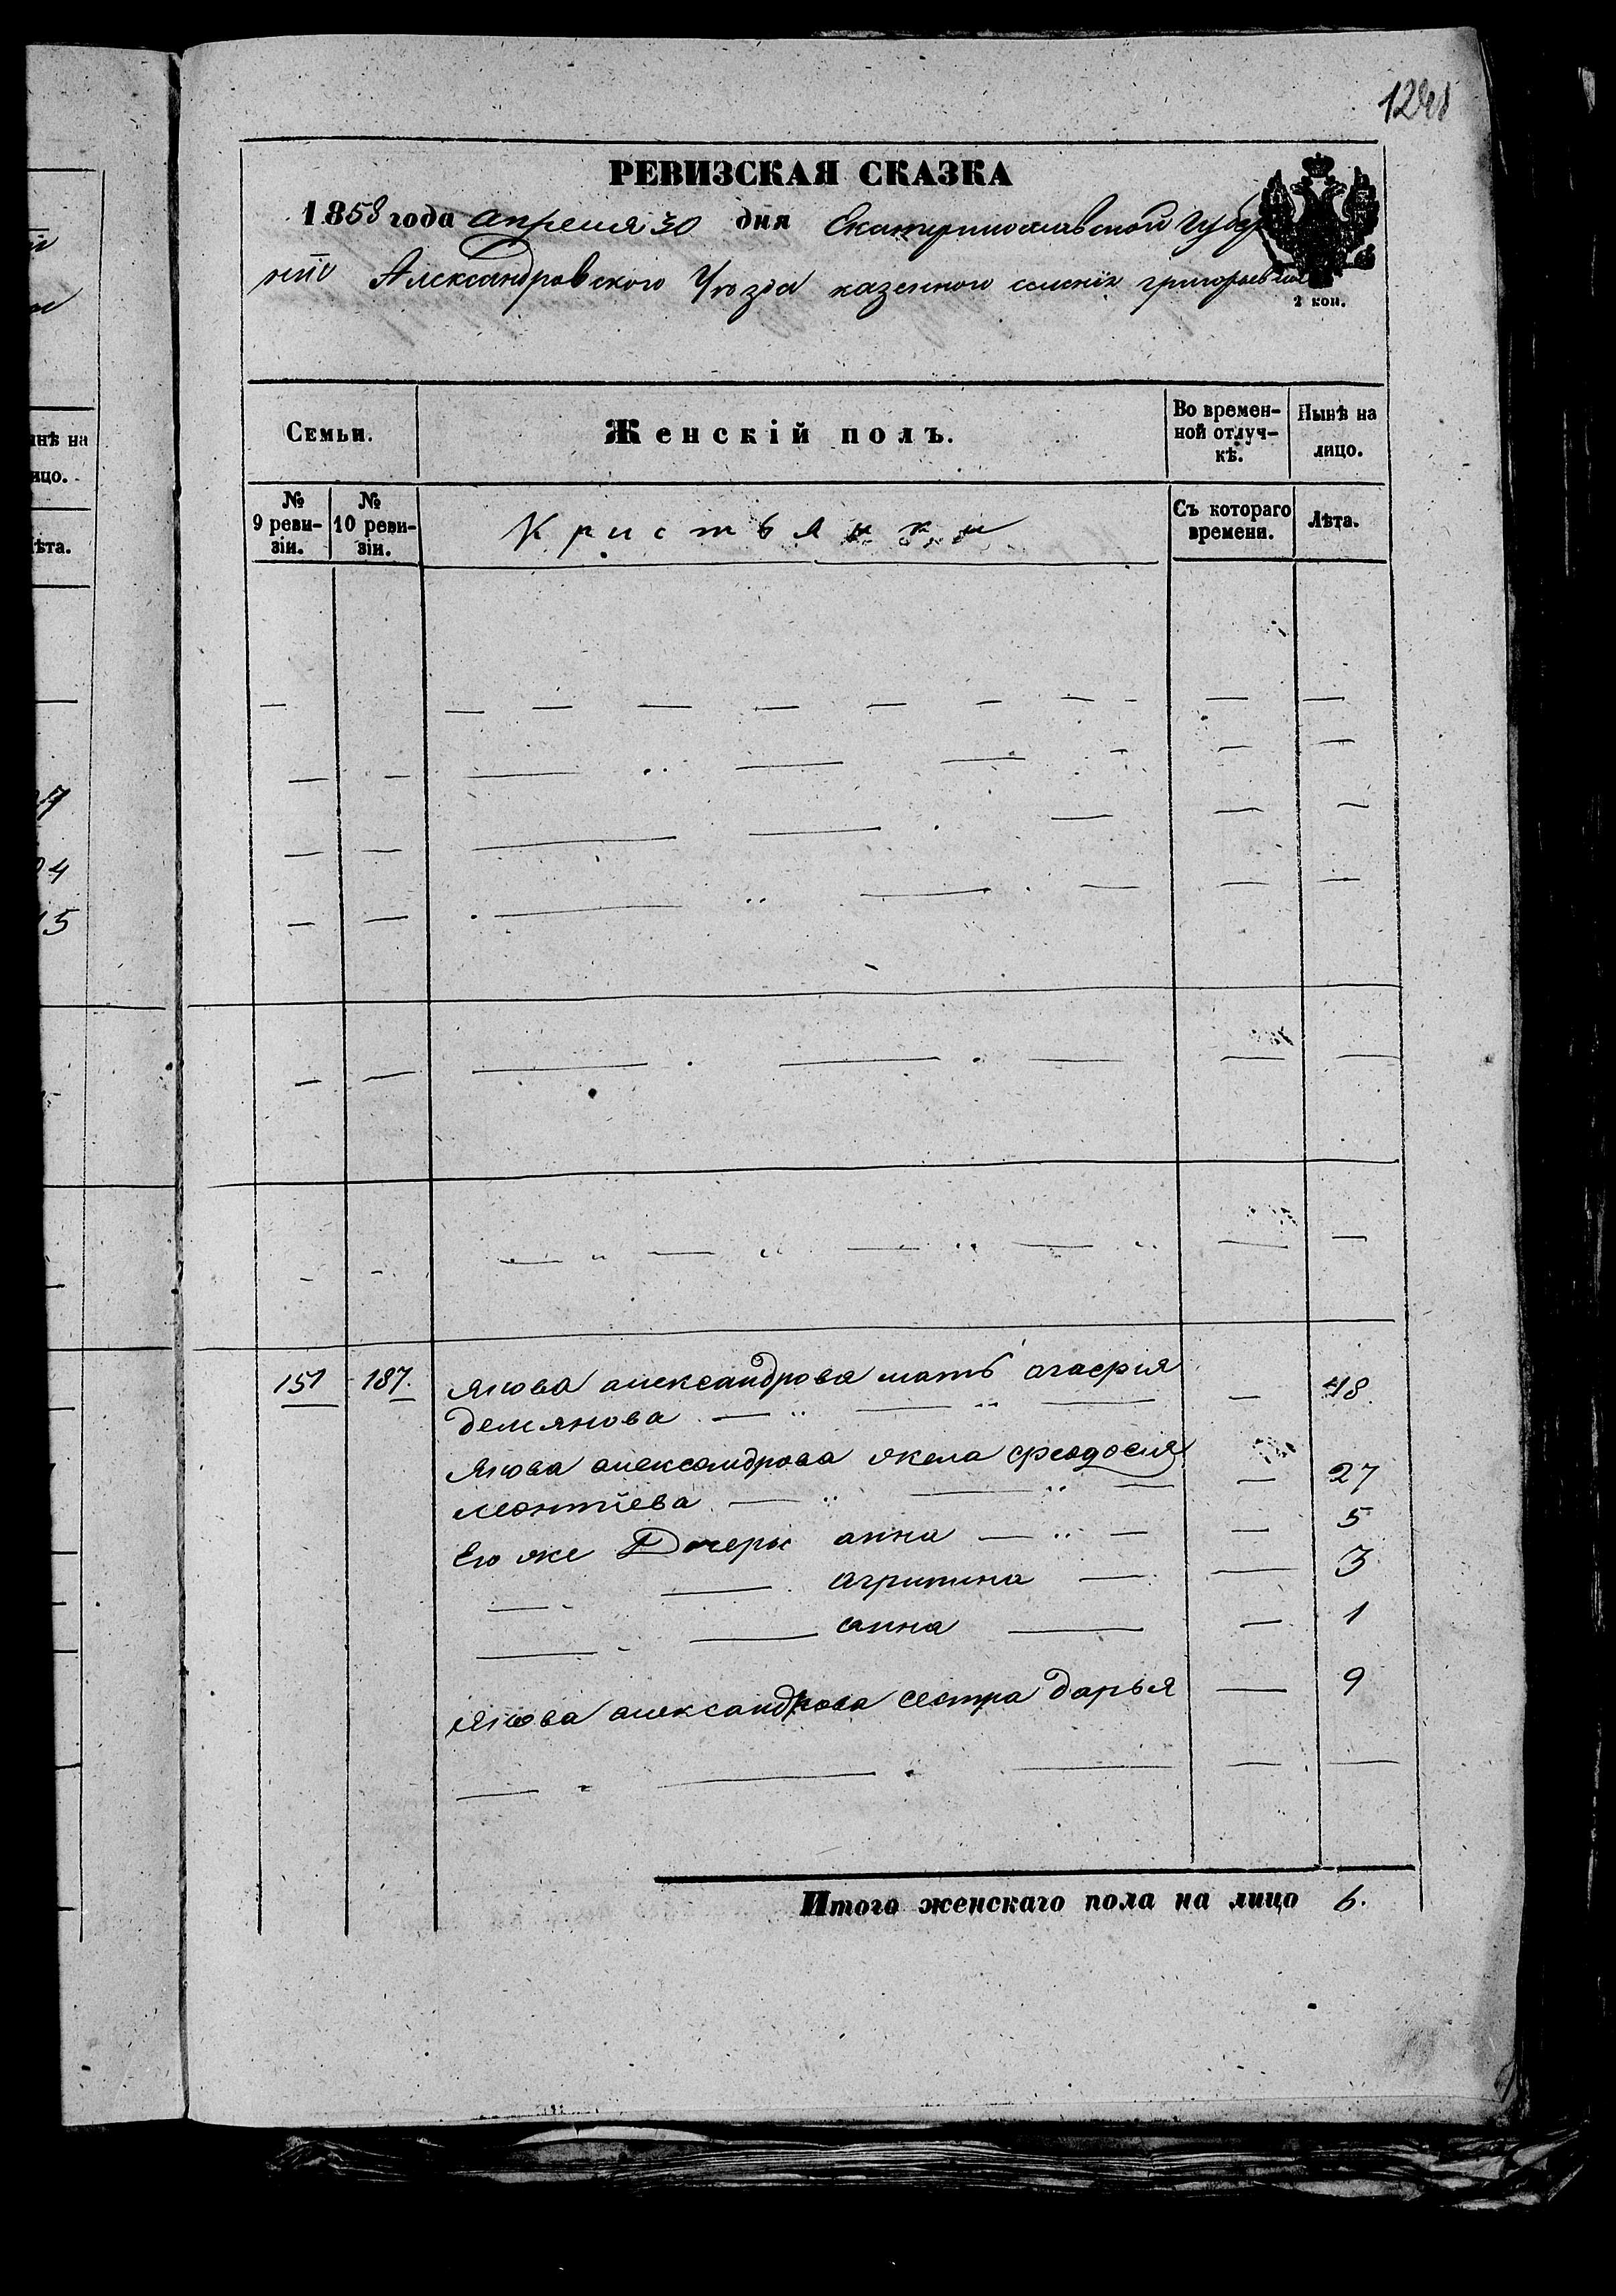 РЕВИЗСКАЯ СКАЗКА
1858 года апреля 30 дня Екатеринославской Губер
нiи Александровского Уѣзда казенного селенiя григорьевки
2 коп.
Семьи.
Женскiй полъ.
Во времен-
ной отлуч-
кѣ.
Нынѣ на
лицо.
№
9 реви-
зiи.
№
10 реви-
зiи.
Кристьянки
Съ котораго
времени.
Лѣта.
151 187. Якова александрова мать агафiя
демянова — 48.
Якова александрова жена феодосия
леонтiева — 27
Его же Дочери анна — 5
агрипина — 3
анна — 1
Якова александрова сестра дарья — 9
Итого женскаго пола на лицо 6.
нѣ на
ицо.
ѣта.
7
4
15